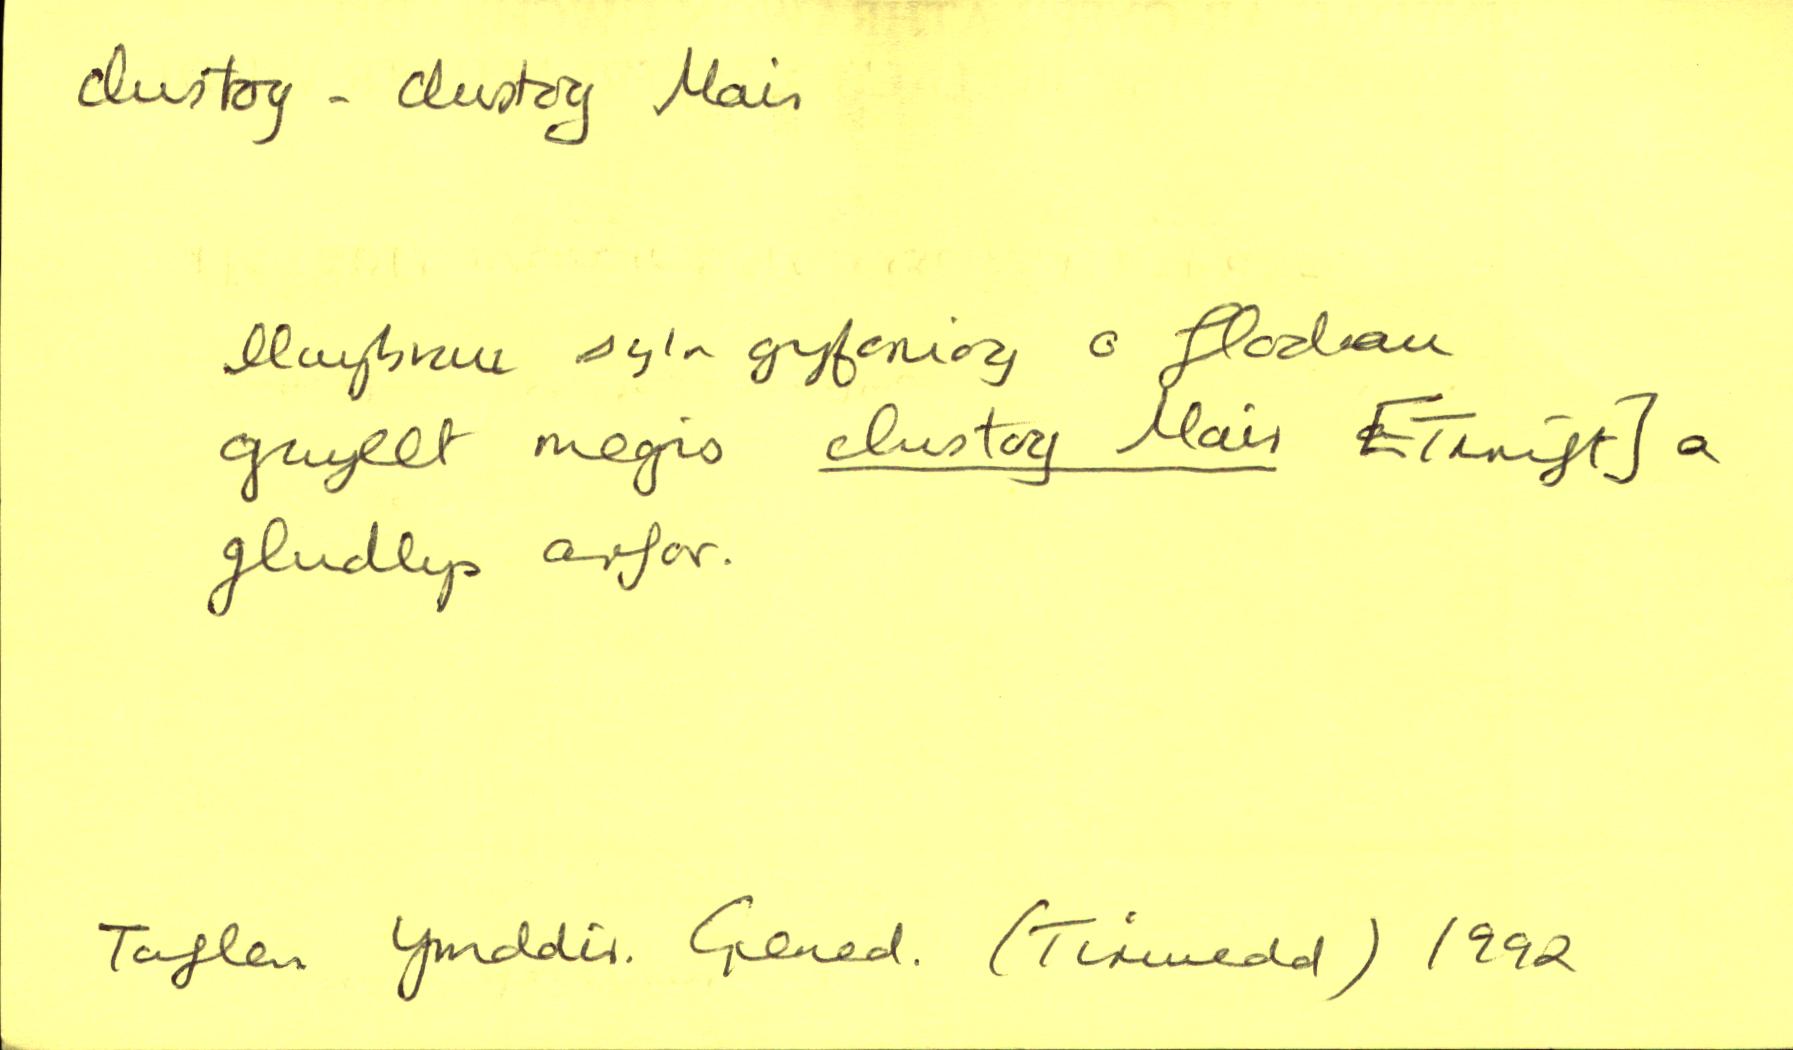 clustog - clustog Mair
llwybrau sy'n gyfoeniog o flodau
gwyllt megis clustog Mair [Thrift] a
gludlys arfor.
Taflen Ymddir. Gened. (Tirwedd) 1992